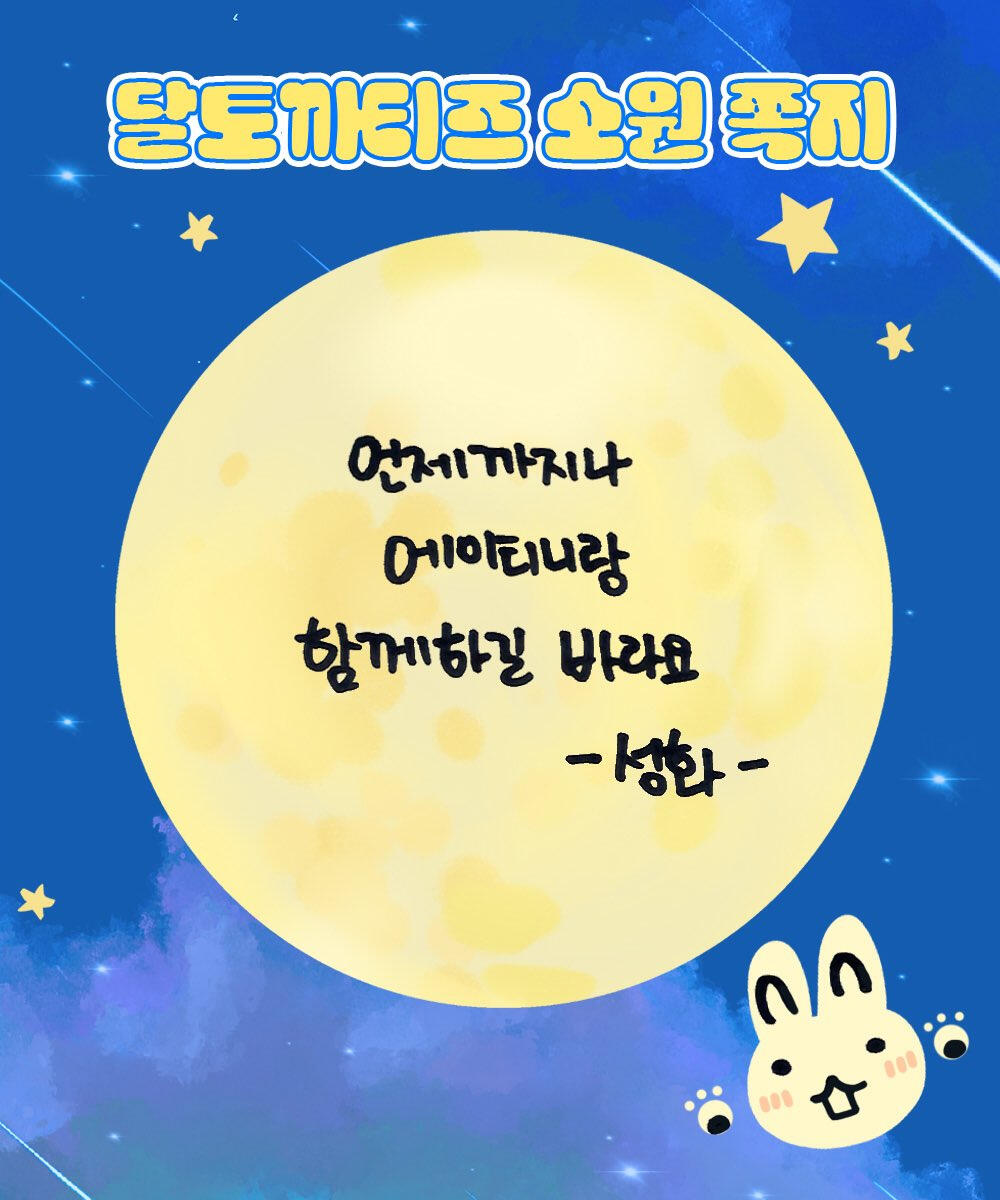 달토끼티즈 소원 쪽지
언제까지나
에이티니랑
함께하길 바라요
-성화-